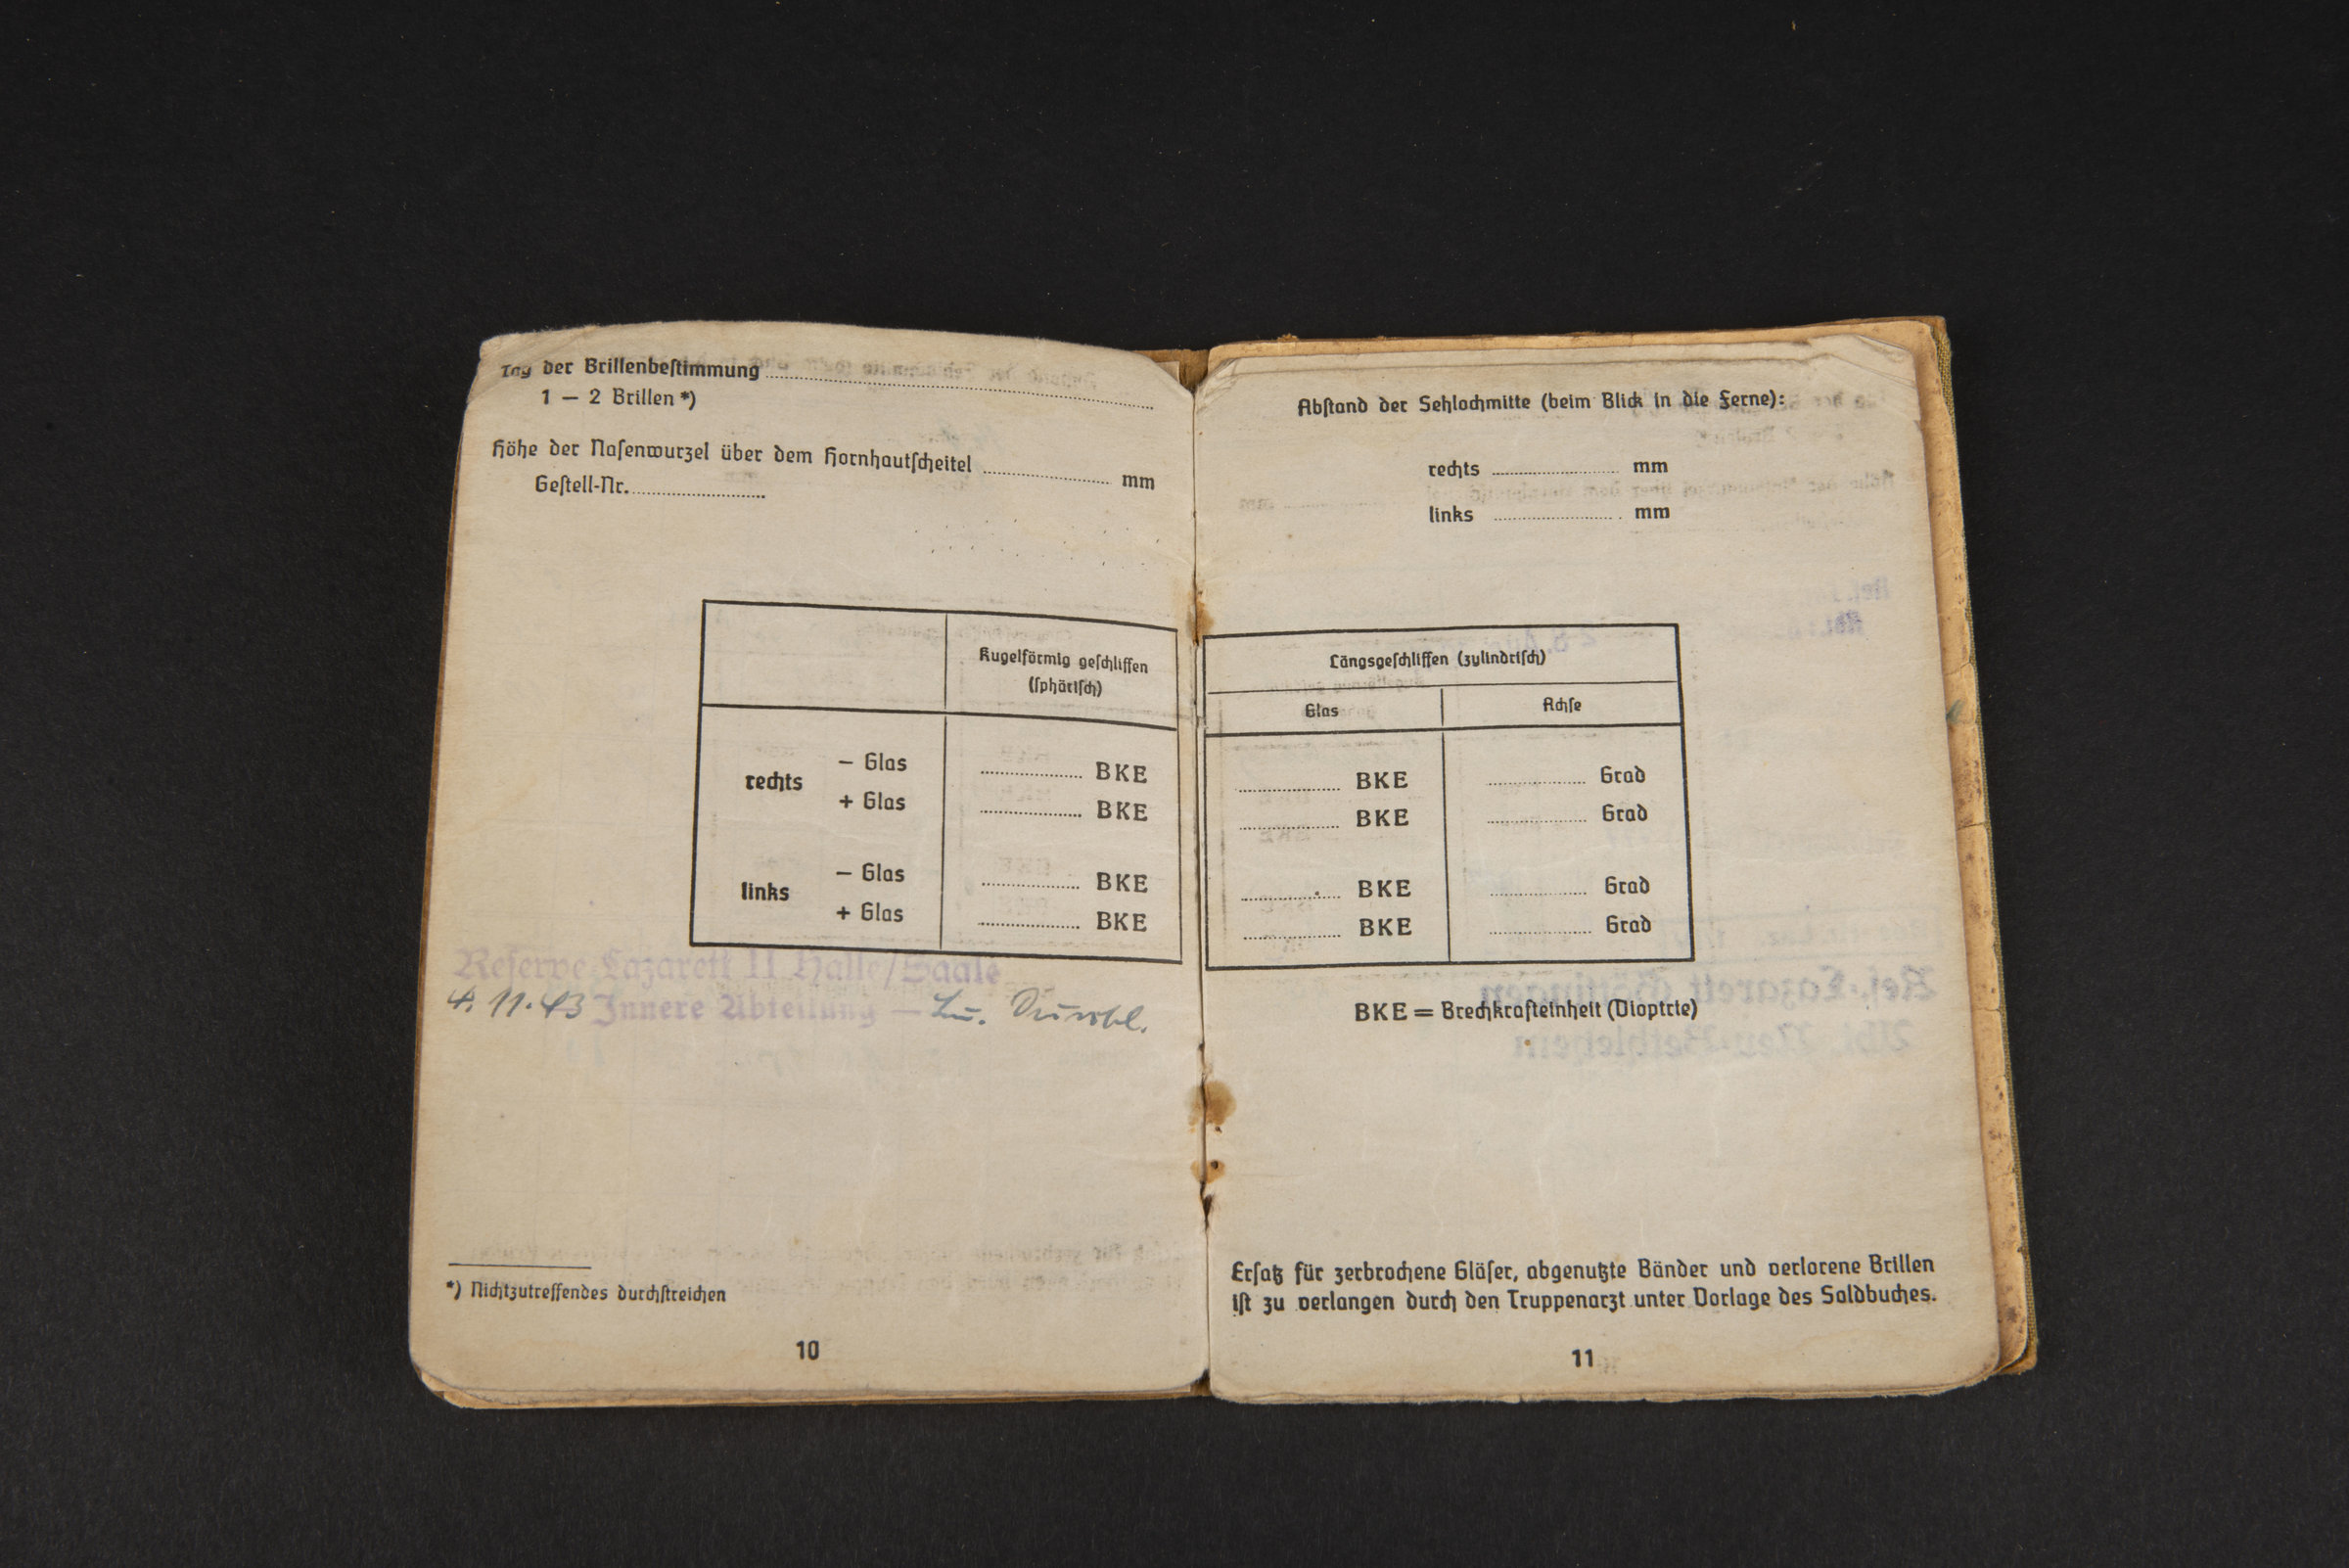 Tag der Brillenbestimmung
1 — 2 Brillen *)
Höhe der Nasenwurzel über dem Hornhautscheitel mm
Gestell-Nr.
Kugelförmig geschliffen
(sphärisch)
rechts
— Glas BKE
+ Glas BKE
links
— Glas BKE
+ Glas BKE
Reserve Lazarett II Halle/Saale
4.11.43 Innere Abteilung —
*) Nichtzutreffendes durchstreichen
10
Abstand der Sehlochmitte (beim Blick in die Ferne):
rechts mm
links mm
Längsgeschliffen (zylindrisch)
Glas Achse
BKE Grad
BKE Grad
BKE Grad
BKE Grad
BKE = Brechkrafteinheit (Dioptrie)
Ersatz für zerbrochene Gläser, abgenutzte Bänder und verlorene Brillen
ist zu verlangen durch den Truppenarzt unter Vorlage des Soldbuches.
11